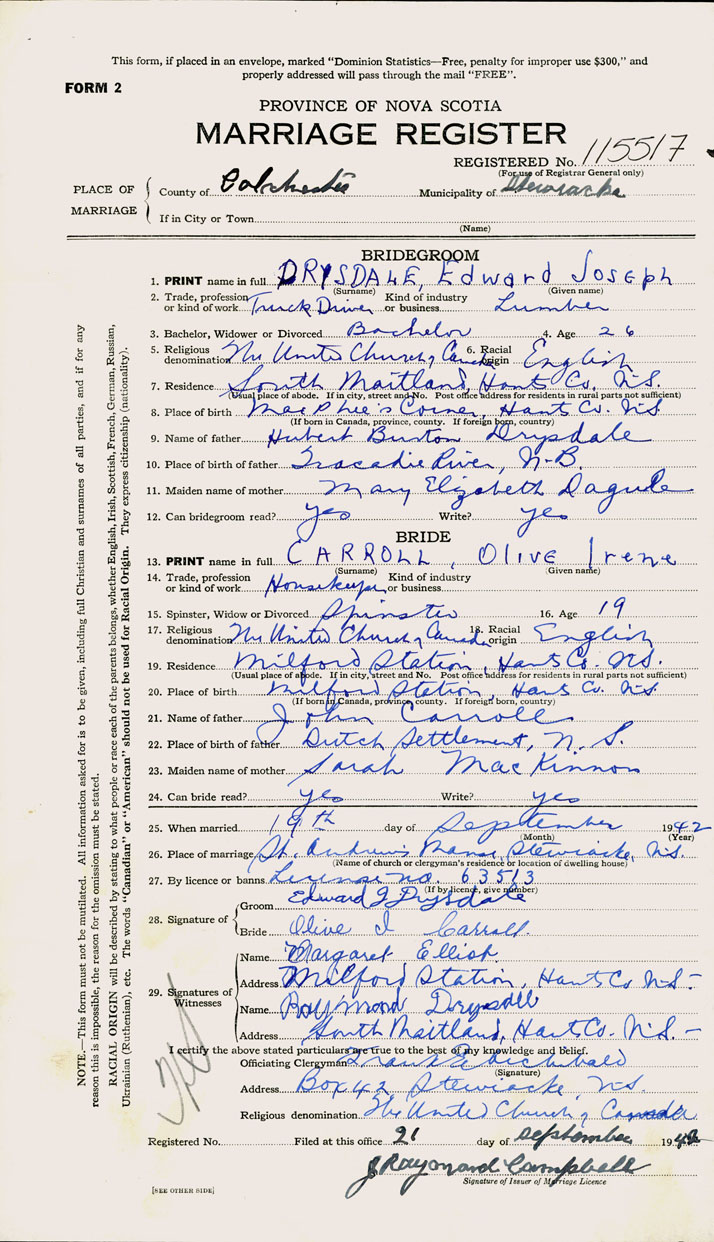 This form, if placed in an envelope, marked "Dominion Statistics—Free, penalty for improper use $300," and
properly addressed will pass through the mail "FREE".
FORM 2
PROVINCE OF NOVA SCOTIA
MARRIAGE REGISTER
REGISTERED No. 115517
(For use of Registrar General only)
PLACE OF MARRIAGE
County of Colchester Municipality of Stewiacke
If in City or Town
(Name)
BRIDEGROOM
1. PRINT name in full DRYSDALE, Edward Joseph
(Surname) (Given name)
2. Trade, profession or kind of work Truck Driver Kind of industry or business Lumber
3. Bachelor, Widower or Divorced Bachelor 4. Age 26
5. Religious denomination The United Church of Canada 6. Racial origin English
7. Residence South Maitland, Hants Co. N.S.
(Usual place of abode. If in city, street and No. Post office address for residents in rural parts not sufficient)
8. Place of birth MacPhee's Corner, Hants Co. N.S
(If born in Canada, province, county. If foreign born, country)
9. Name of father Hubert Burton Drysdale
10. Place of birth of father Tracadie River, N.B.
11. Maiden name of mother Mary Elizabeth
12. Can bridegroom read? yes Write? yes
BRIDE
13. PRINT name in full CARROLL, Olive Irene
(Surname) (Given name)
14. Trade, profession or kind of work Housekeeper Kind of industry or business
15. Spinster, Widow or Divorced Spinster 16. Age 19
17. Religious denomination The United Church of Canada 18. Racial origin English
19. Residence Milford Station, Hants Co. N.S.
(Usual place of abode. If in city, street and No. Post office address for residents in rural parts not sufficient)
20. Place of birth Milford Station, Hants Co. N.S.
(If born in Canada, province, county. If foreign born, country)
21. Name of father John Carroll
22. Place of birth of father Dutch Settlement, N.S.
23. Maiden name of mother Sarah MacKinnon
24. Can bride read? yes Write? yes
25. When married 19th day of September 1942
(Month) (Year)
26. Place of marriage St. Andrew's Manse, Stewiacke, N.S.
(Name of church or clergyman's residence or location of dwelling house)
27. By licence or banns License no. 63513
(If by licence, give number)
28. Signature of
Groom Edward J Drysdale
Bride Olive I Carroll.
29. Signatures of Witnesses
Name Margaret
Address Milford Station, Hants Co N.S.-
Name Raymond
Address South Maitland, Hants Co. N.S.-
I certify the above stated particulars are true to the best of my knowledge and belief.
Officiating Clergyman Frank E Archibald
(Signature)
Address Box 42 Stewiacke, N.S.
Religious denomination The United Church of Canada
Registered No. Filed at this office 21 day of September 1942
J Raymond Campbell
Signature of Issuer of Marriage Licence
[SEE OTHER SIDE]
NOTE.—This form must not be mutilated. All information asked for is to be given, including full Christian and surnames of all parties, and if for any
reason this is impossible, the reason for the omission must be stated.
RACIAL ORIGIN will be described by stating to what people or race each of the parents belongs, whether English, Irish, Scottish, French, German, Russian,
Ukrainian (Ruthenian), etc. The words "Canadian" or "American" should not be used for Racial Origin. They express citizenship (nationality).